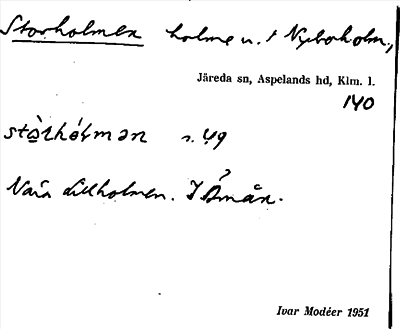 Storholmen holme u. t Nyboholm,
Järeda sn, Aspelands hd, Klm. l.
140
stòrhólmən s. 49
Nära Lillholmen. I Åmån.
Ivar Modéer 1951